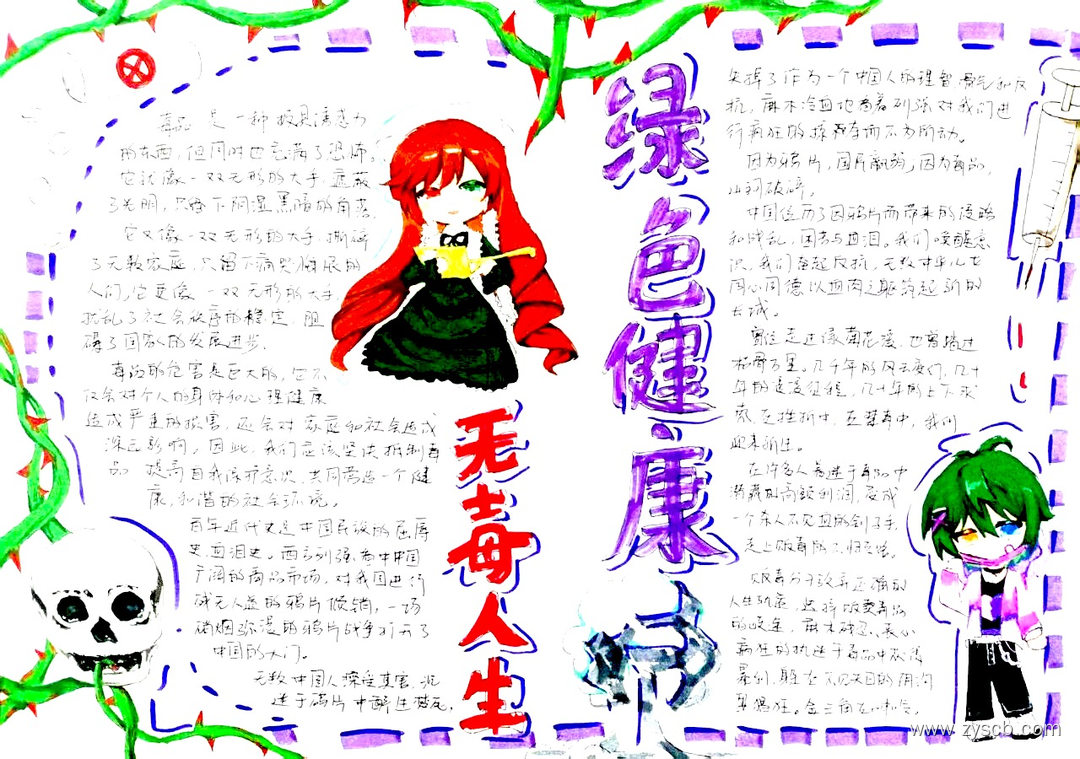 绿色健康
无毒人生
毒品是一种极具诱惑力
的东西，但同时也充满了恐怖。
它就像一双无形的大手，遮蔽
了光明，只留下阴湿黑暗的角落，
它又像一双无形的大手，撕碎
了无数家庭，只留下痛哭
人们，它更像一双无形的大手，
扰乱了社会秩序的稳定，阻
碍了国家的发展进步。
毒品的危害是巨大的，它不
仅会对个人的身体和心理健康
造成严重的损害，还会对家庭和社会造成
深远影响。因此，我们应该坚决抵制毒
品，提高自我保护意识，共同营造一个健
康，和谐的社会环境。
百年近代史是中国民族的屈辱
史，血泪史。西方列强看中中国
广阔的商品市场，对我国进行
惨无人道的鸦片倾销，一场
硝烟弥漫的鸦片战争打开了
中国的大门。
无数中国人深受其害，沉
迷于鸦片中醉生梦死，
失掉了作为一个中国人的理智
抗，麻木冷血地看着列强对我们进
行疯狂的掠夺而不为所动。
因为鸦片，国民羸弱，因为毒品，
山河破碎。
中国经历了因鸦片而带来的侵略
和战乱，困苦与血泪。我们唤醒意
识，我们奋起反抗，无数中华儿女
同心同德以血肉之躯筑起新的
长城。
曾经走过
几千年的风云变幻，几十
年的
在挫折中，在
中，我们
迎来新生。
在许多人着迷于毒品中
潜藏的高额利润，变成
一个杀人不见血的刽子手，
走上贩毒的不归路。
贩毒分子放弃正确的
人生轨道，选择贩卖毒品
的歧途，麻木
疯狂的执迷于毒品中
暴利，躲在不见天日的阴沟
里猖狂。金三角
www.zyscb.com